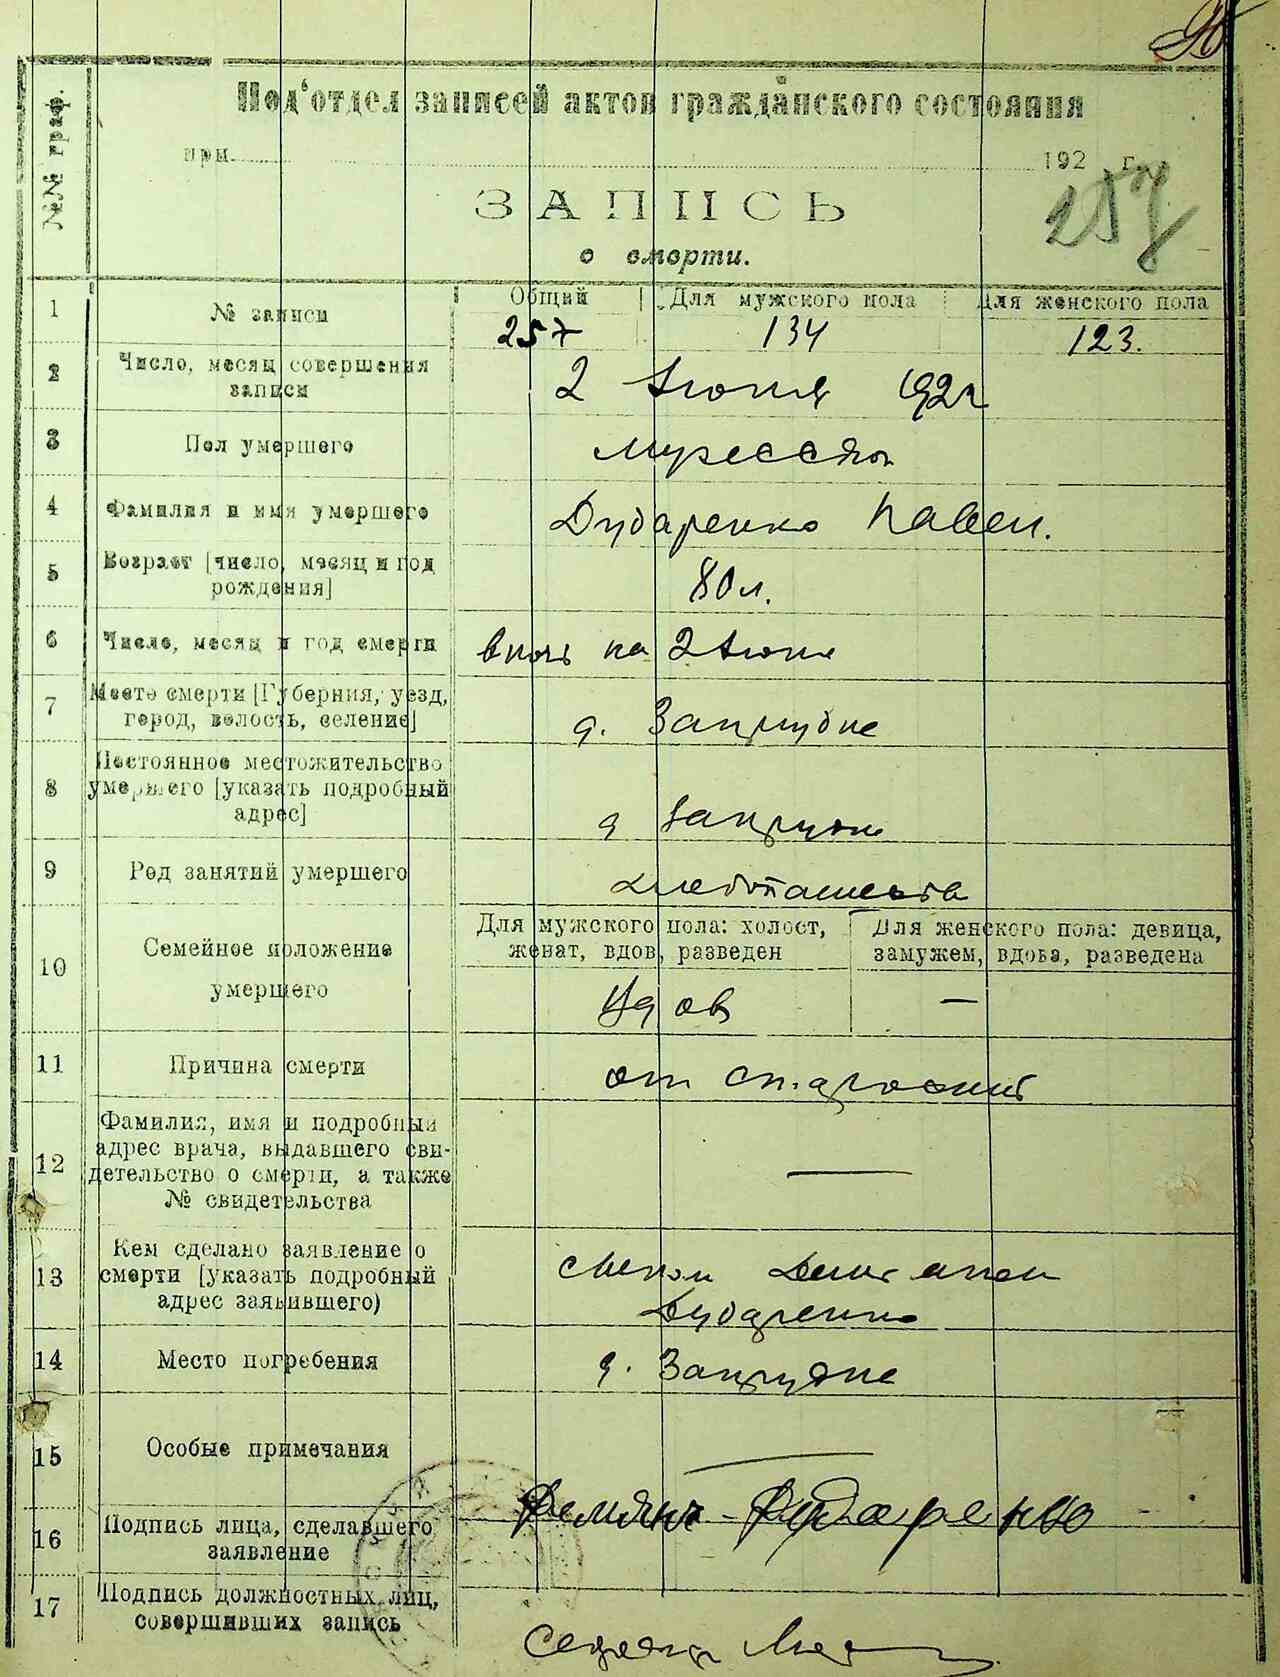 Под'отдел записей актов гражданского состояния
№№ граф.
при 192 г.
257
ЗАПИСЬ
о смерти.
1 № записи Общий Для мужского пола Для женского пола
257 134 123.
2 Число, месяц совершения
записи 2 Июня 192
3 Пол умершего мужской
4 Фамилия и имя умершего Дударенко Павел.
5 Возраст [число, месяц и год
рождения] 80 л.
6 Число, месяц и год смерти в ночь на 2 Июня
7 Место смерти [Губерния, уезд,
город, волость, селение] д. Запрудне
8 Постоянное местожительство
умершего [указать подробный
адрес] д Запрудне
9 Род занятий умершего хлебопашество
10 Семейное положение
умершего
Для мужского пола: холост,
женат, вдов, разведен
Для женского пола: девица,
замужем, вдова, разведена
Вдов —
11 Причина смерти от старости
12 Фамилия, имя и подробный
адрес врача, выдавшего сви-
детельство о смерти, а также
№ свидетельства —
13 Кем сделано заявление о
смерти [указать подробный
адрес заявившего)
Дударенко
14 Место погребения д. Запрудне
15 Особые примечания —
16 Подпись лица, сделавшего
заявление Демян Дударенко
17 Подпись должностных лиц,
совершивших запись